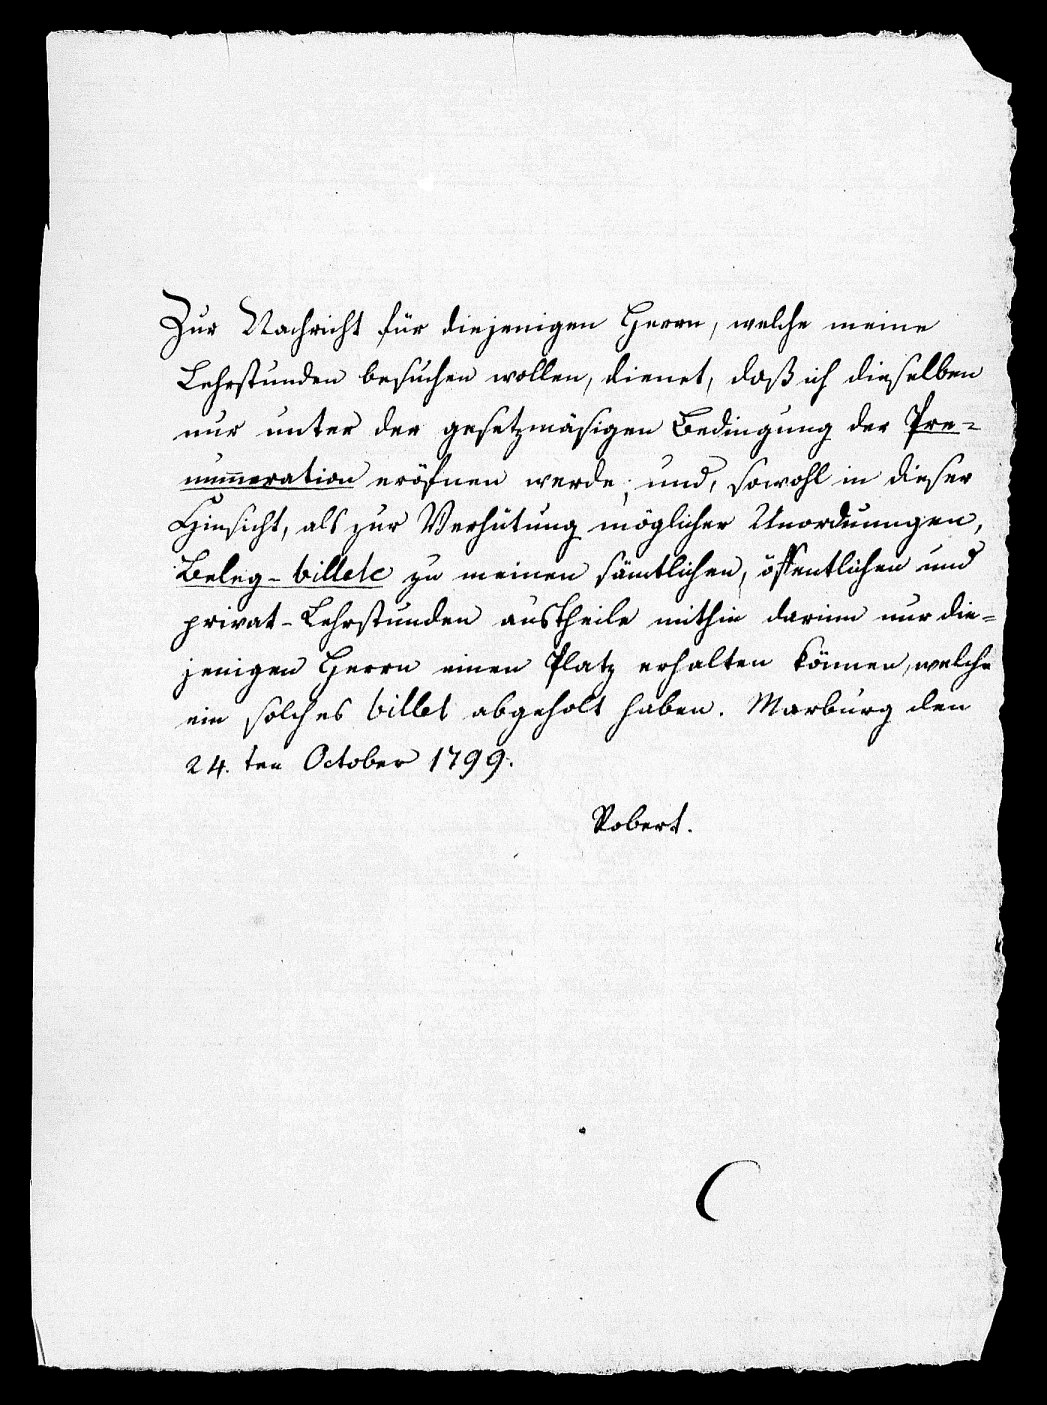 Zur Nachricht für diejenigen Herrn, welche meine
Lehrstunden besuchen wollen, dienet, daß ich dieselben
nur unter der gesetzmäsigen Bedingung der Pre-
nummeration eröfnen werde; und, sowohl in dieser
Hinsicht, als zur Verhütung möglicher Unordnungen,
Beleg-billete zu meinen sämtlichen, öffentlichen und
privat-Lehrstunden austheile mithin darinn nur die-
jenigen Herrn einen Platz erhalten können, welche
ein solches billet abgeholt haben. Marburg den
24. ten October 1799.
Robert.
C